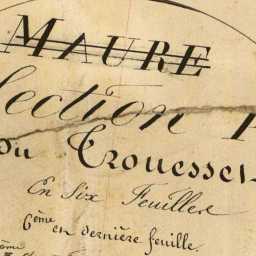 MAURE
Section
du Trouesset
En Six Feuilles
6ème en dernière feuille.